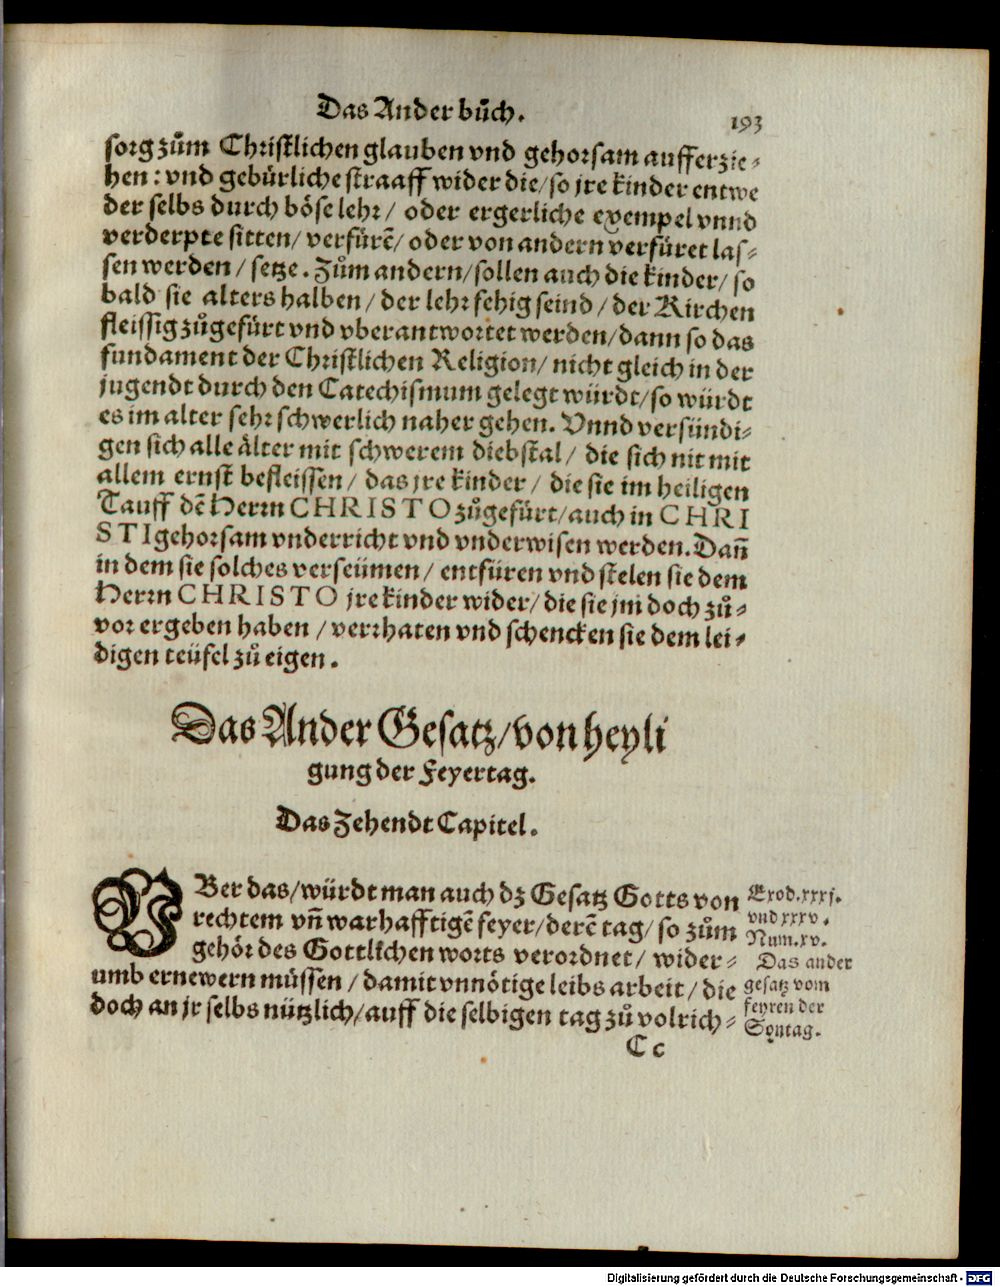 Das Ander bůch.
193
sorg zům Christlichen glauben vnd gehorsam aufferzie-
hen: vnd gebürliche straaff wider die/ so jre kinder entwe
der selbs durch böse lehr/ oder ergerliche exempel vnnd
verderpte sitten/ verfürẽ/ oder von andern verfüret las-
sen werden/ setze. Zům andern/ sollen auch die kinder/ so
bald sie alters halben/ der lehr fehig seind/ der Kirchen
fleissig zůgefürt vnd vberantwortet werden/ dann so das
fundament der Christlichen Religion/ nicht gleich in der
jugendt durch den Catechismum gelegt würdt/ so würdt
es im alter sehr schwerlich naher gehen. Vnnd versündi-
gen sich alle älter mit schwerem diebstal/ die sich nit mit
allem ernst befleissen/ das jre kinder/ die sie im heiligen
Tauff dẽ Herrn CHRISTO zůgefürt/ auch in CHRI
STI gehorsam vnderricht vnd vnderwisen werden. Dañ
in dem sie solches verseümen/ entfüren vnd stelen sie dem
Herrn CHRISTO jre kinder wider/ die sie jm doch zů-
vor ergeben haben/ verrhaten vnd schencken sie dem lei-
digen teüfel zů eigen.
Das Ander Gesatz/ von heyli
gung der Feyertag.
Das Zehendt Capitel.
VBer das/ würdt man auch dz Gesatz Gotts von
rechtem vñ warhafftigẽ feyer/ derẽ tag/ so zům
gehör des Gottlichen worts verordnet/ wider-
umb ernewern müssen/ damit vnnötige leibs arbeit/ die
doch an jr selbs nützlich/ auff die selbigen tag zů volrich-
Exod. xxxj.
vnd xxxv.
Num. xv.
Das ander
gesatz vom
feyren der
Sontag.
Cc
Digitalisierung gefördert durch die Deutsche Forschungsgemeinschaft - DFG